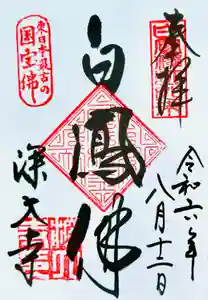 奉拝
令和六年
八月十二日
白鳳佛
深大寺
東日本最古の
国宝佛